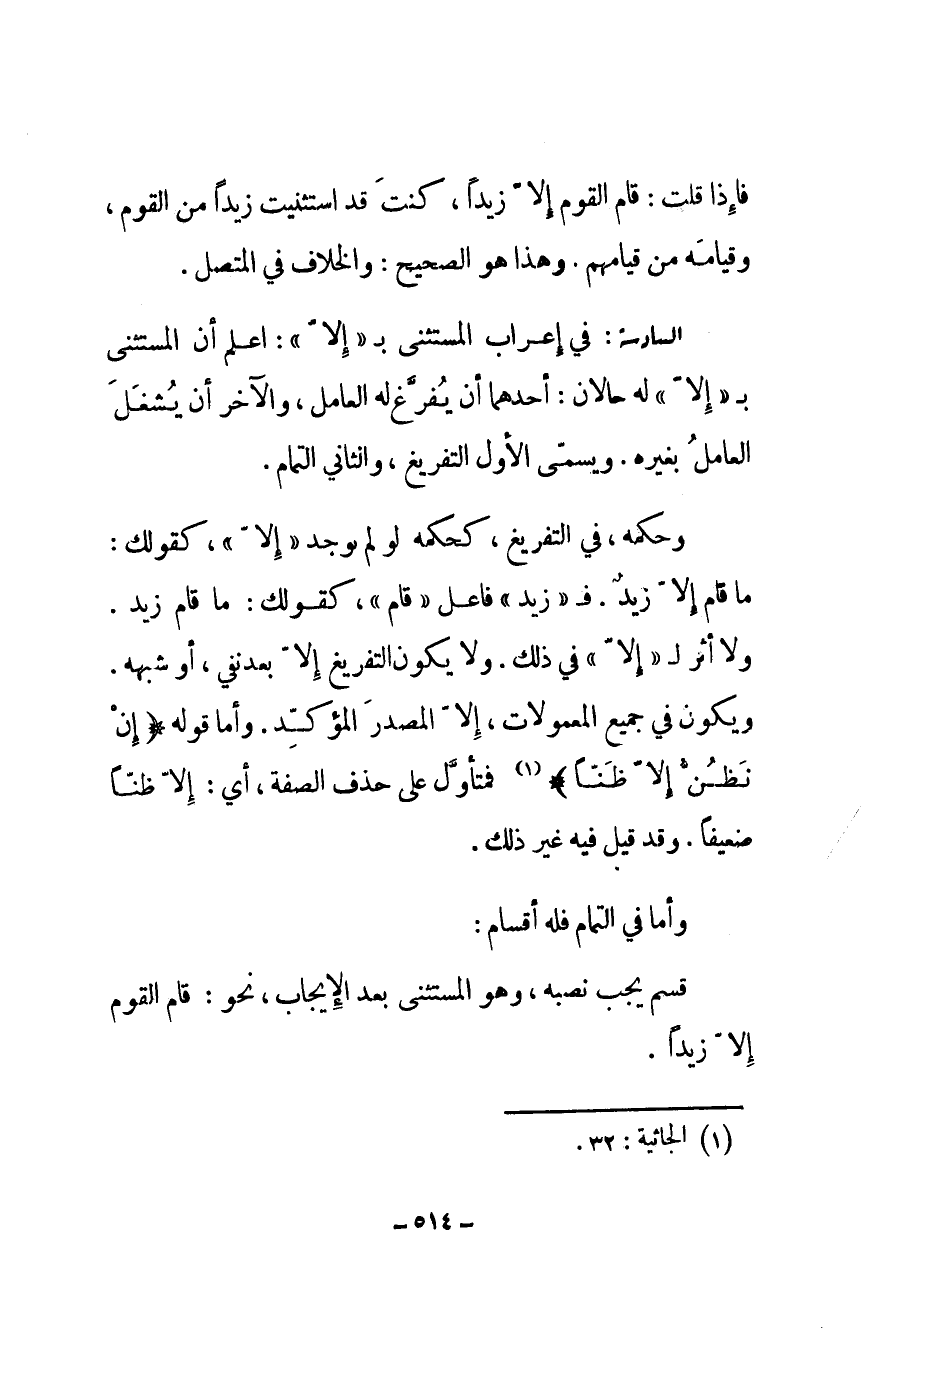 فإذا قلت : قام القوم إلاّ زيداً ، كنتَ قد استثنيت زيداً من القوم ،
وقيامَه من قيامهم . وهذا هو الصحيح : والخلاف في المتصل .
السادسة : في إعراب المستثنى بـ « إلاّ » : اعلم أن المستثنى
بـ « إلاّ » له حالان : أحدهما أن يُفرَّغ له العامل ، والآخر أن يُشغَلَ
العاملُ بغيره . ويسمّى الأول التفريغ ، والثاني التمام .
وحكمه ، في التفريغ ، كحكمه لو لم يوجد « إلاّ » ، كقولك :
ما قام إلاّ زيدٌ . فـ « زيد » فاعل « قام » ، كقولك : ما قام زيد .
ولا أثر لـ « إلاّ » في ذلك . ولا يكون التفريغ إلاّ بعد نفي ، أو شبهه .
ويكون في جميع المعمولات ، إلاّ المصدرَ المؤكِّد . وأما قوله ﴿ إنْ
نَظُنُّ إلاّ ظَنّاً ﴾ (١) فمتأوَّل على حذف الصفة ، أي : إلاّ ظنّاً
ضعيفاً . وقد قيل فيه غير ذلك .
وأما في التمام فله أقسام :
قسم يجب نصبه ، وهو المستثنى بعد الإيجاب ، نحو : قام القوم
إلاّ زيداً .
(١) الجاثية : ٣٢ .
– ٥١٤ –